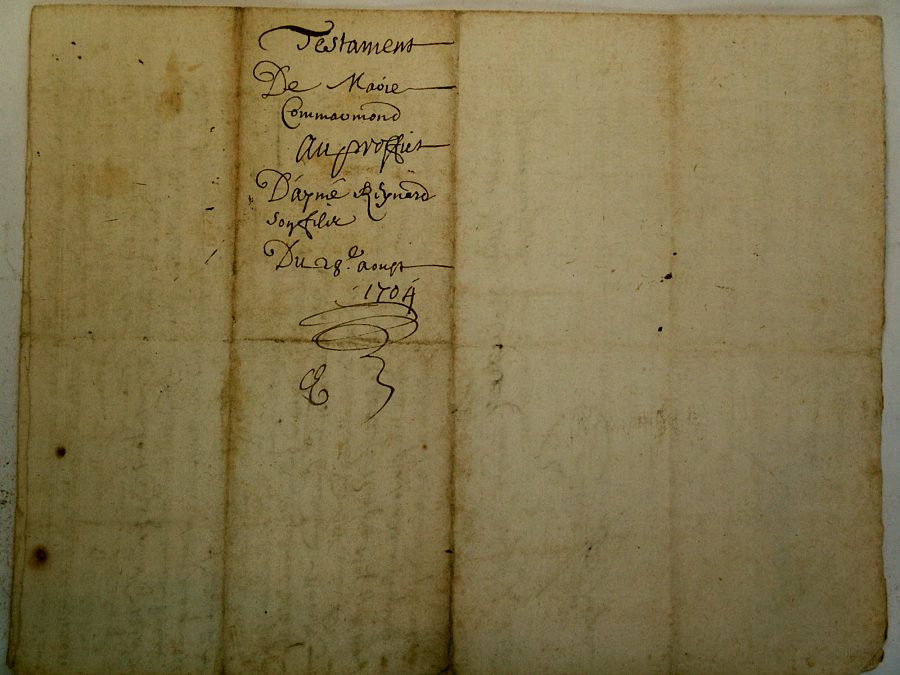 Testament
De Marie
Commarmond
Au proffict
D'aymé Reynard
son filz
Du 28e. aoust
1704